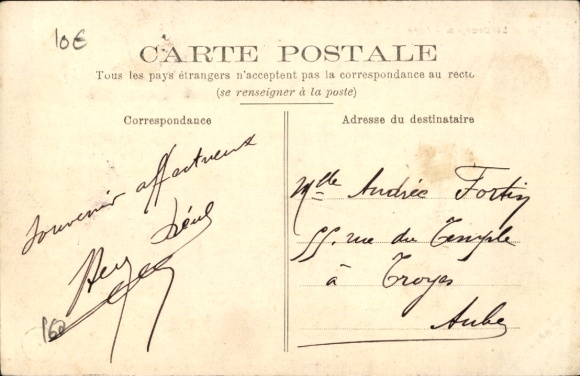 10€
CARTE POSTALE
Tous les pays étrangers n'acceptent pas la correspondance au recto
(se renseigner à la poste)
Correspondance
Souvenir affectueux
Adresse du destinataire
Mlle Andrée Fortin
55. rue du Temple
à Troyes
Aube